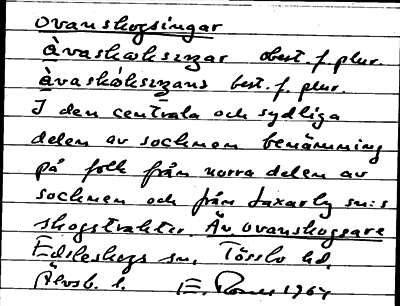 ovanskogsingar
àvaskoksiŋar obest. f. plur.
àvaskóksiŋans best. f. plur.
I den centrala och sydliga
delen av socknen benämning
på folk från norra delen av
socknen och från Laxarby sn:s
skogstrakter. Äv. ovanskogsare
Edsleskogs sn, Tössbo hd,
Älvsb. l. E. 1964